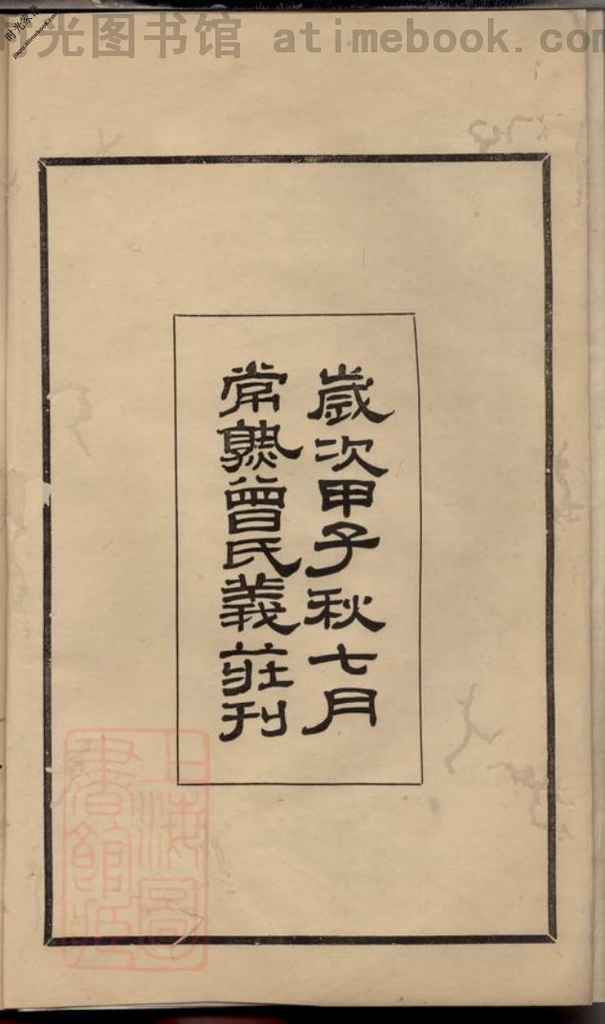 时光图书馆 atimebook.com
歲次甲子秋七月
常熟曾氏義莊刊
上海圖
書館藏